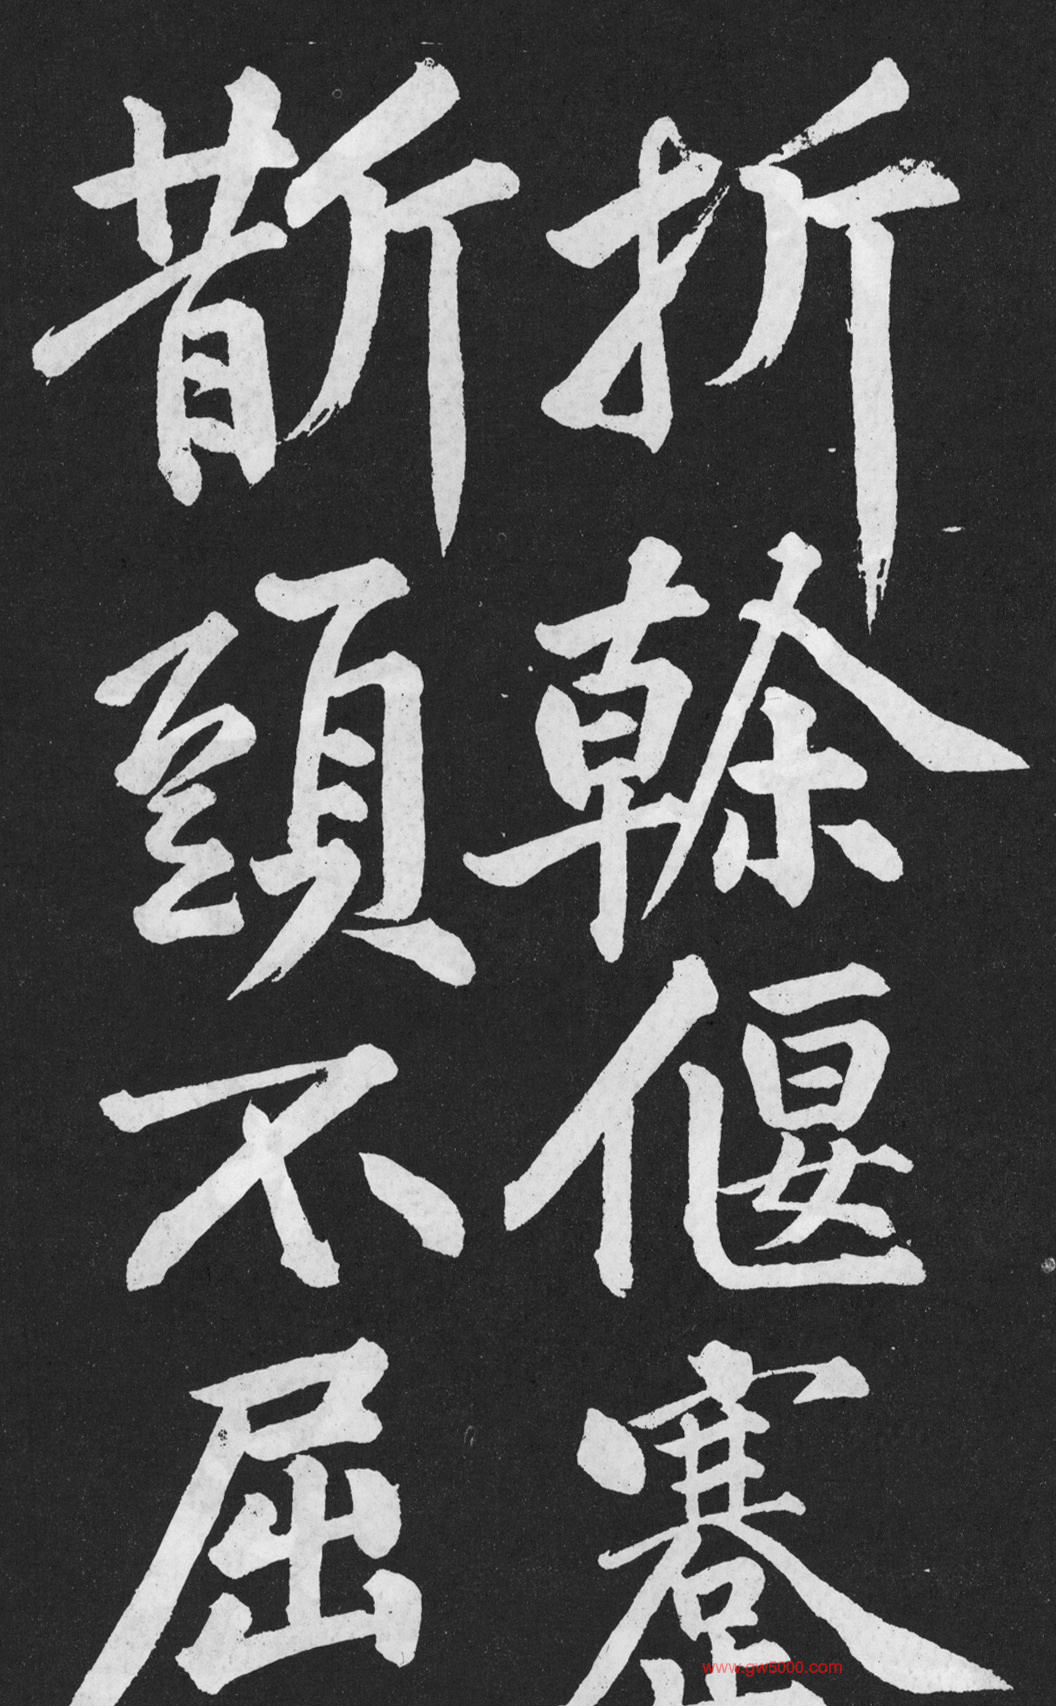 折榦偃蹇
斮頭不屈
www.gw5000.com